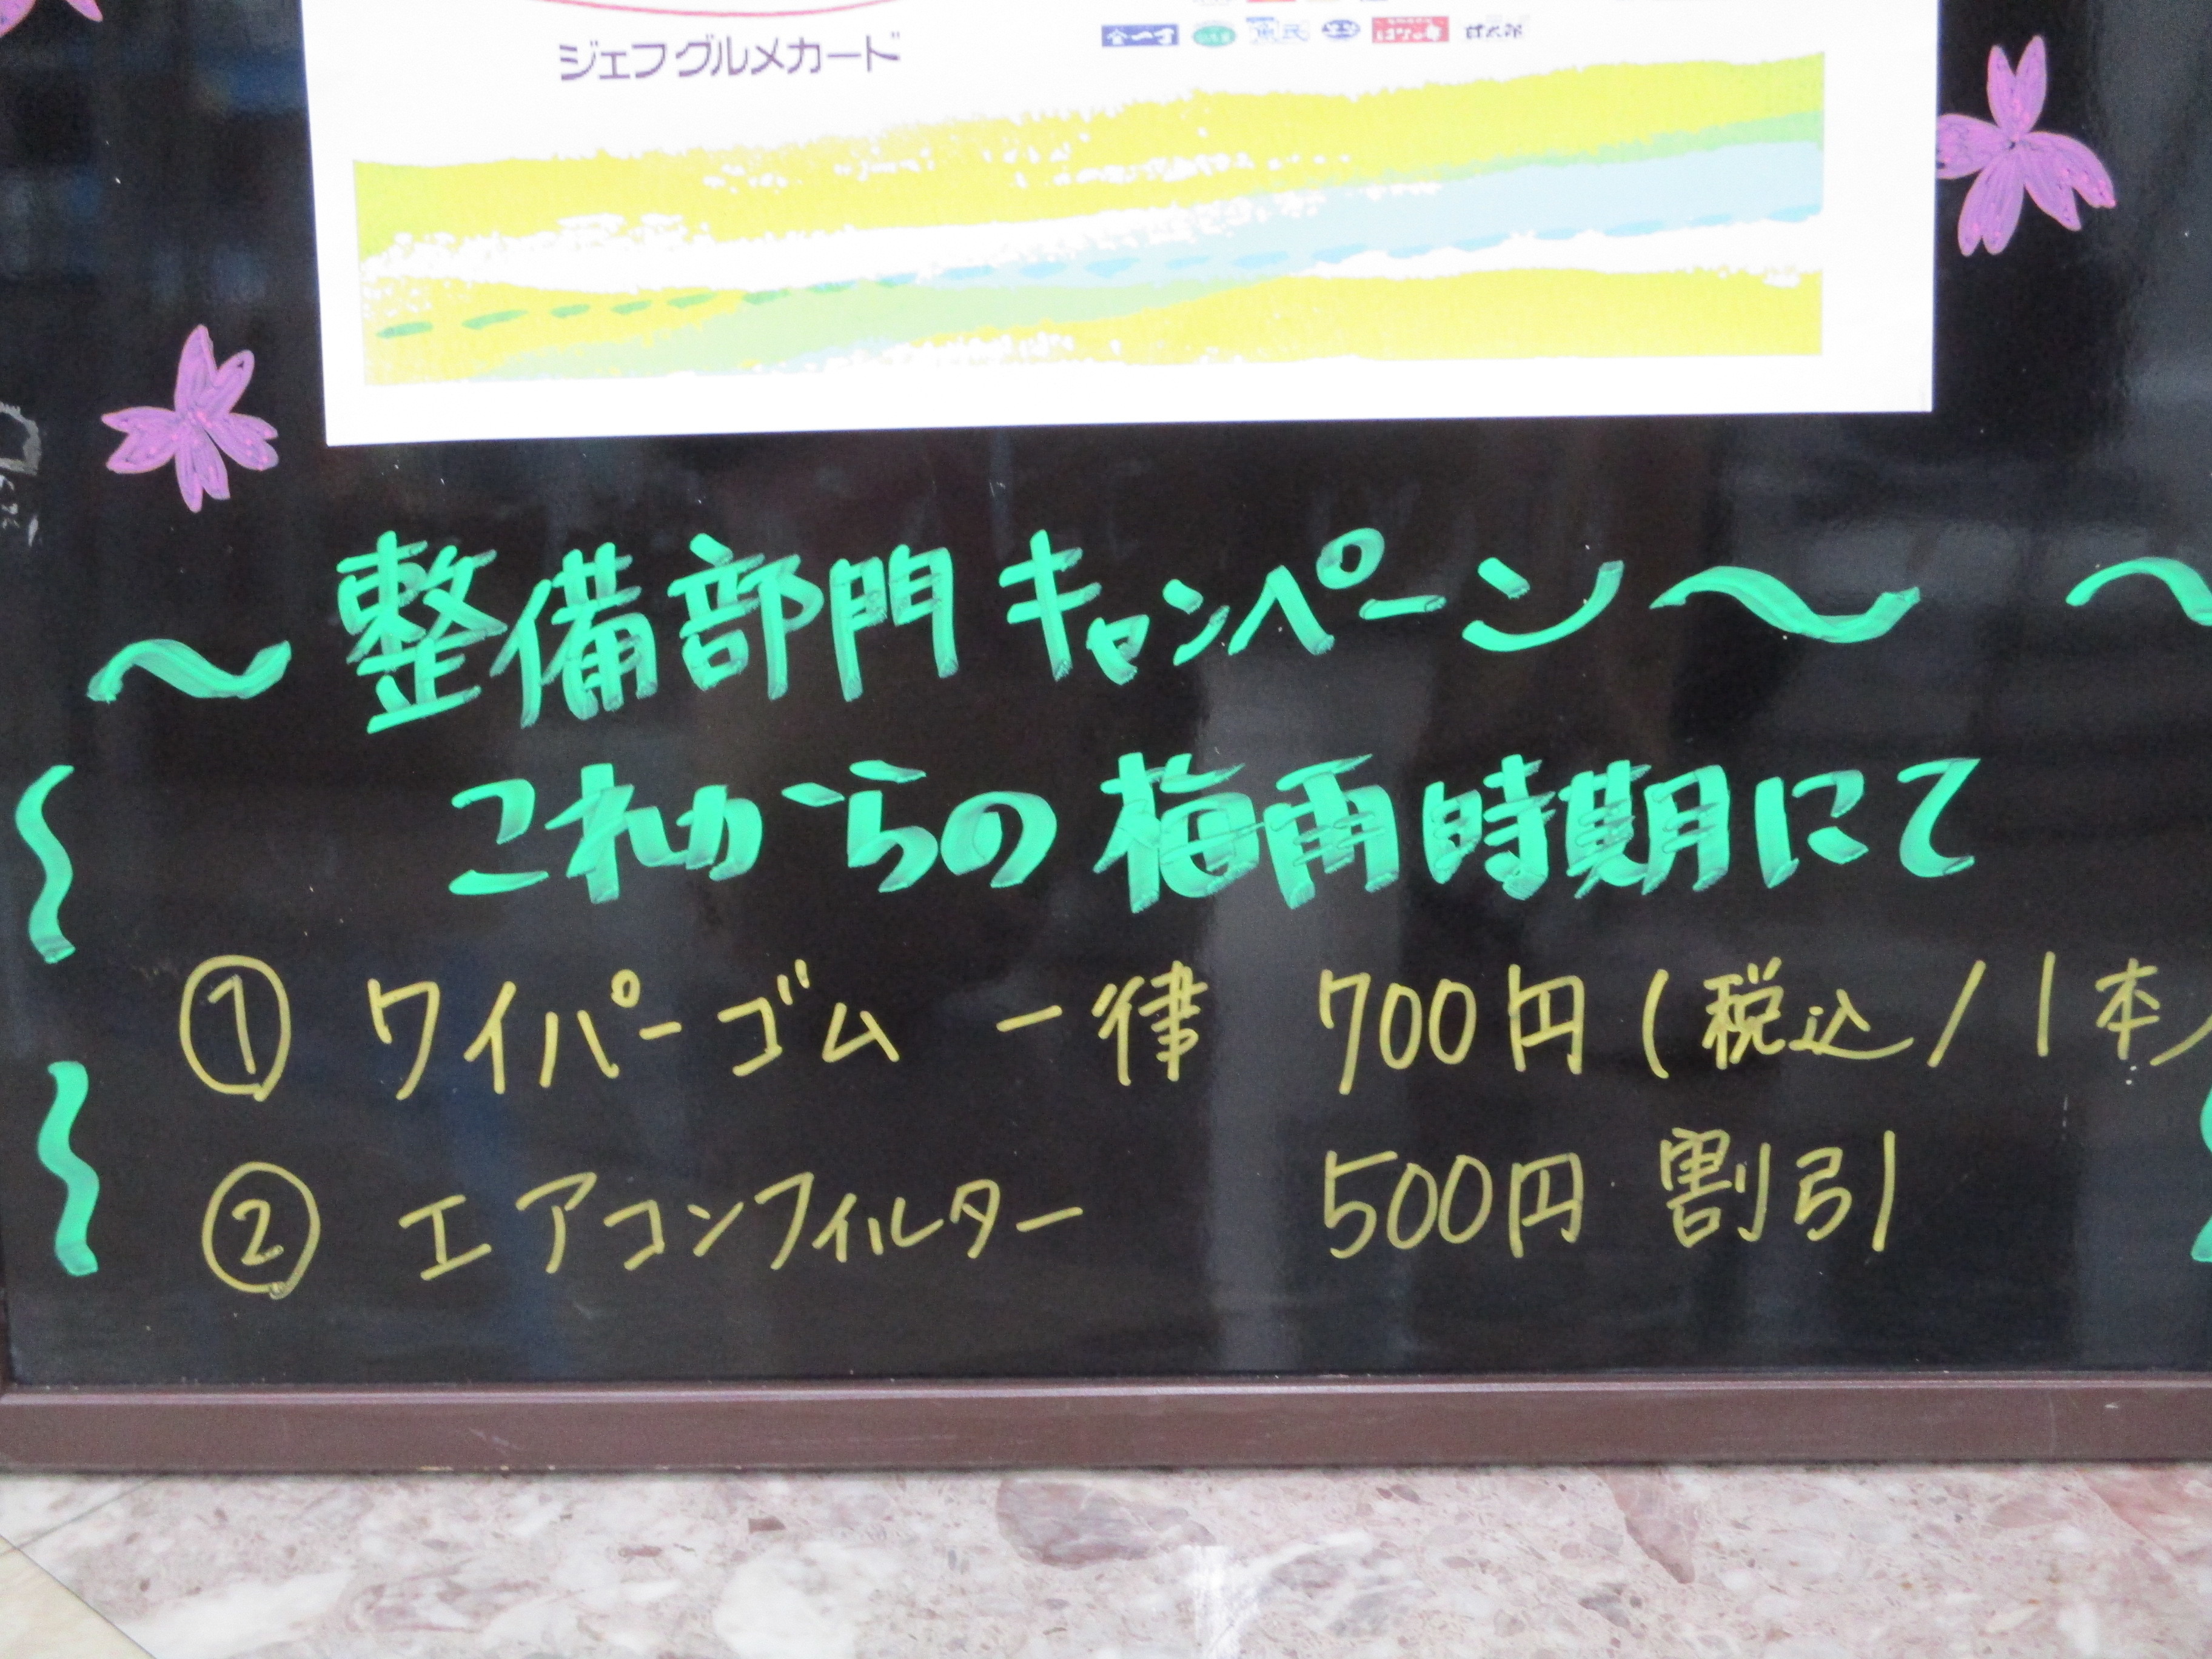 ジェフグルメカード
魚民
はなの舞
～整備部門キャンペーン～
これからの梅雨時期にて
① ワイパーゴム 一律 700円(税込/1本)
② エアコンフィルター 500円 割引